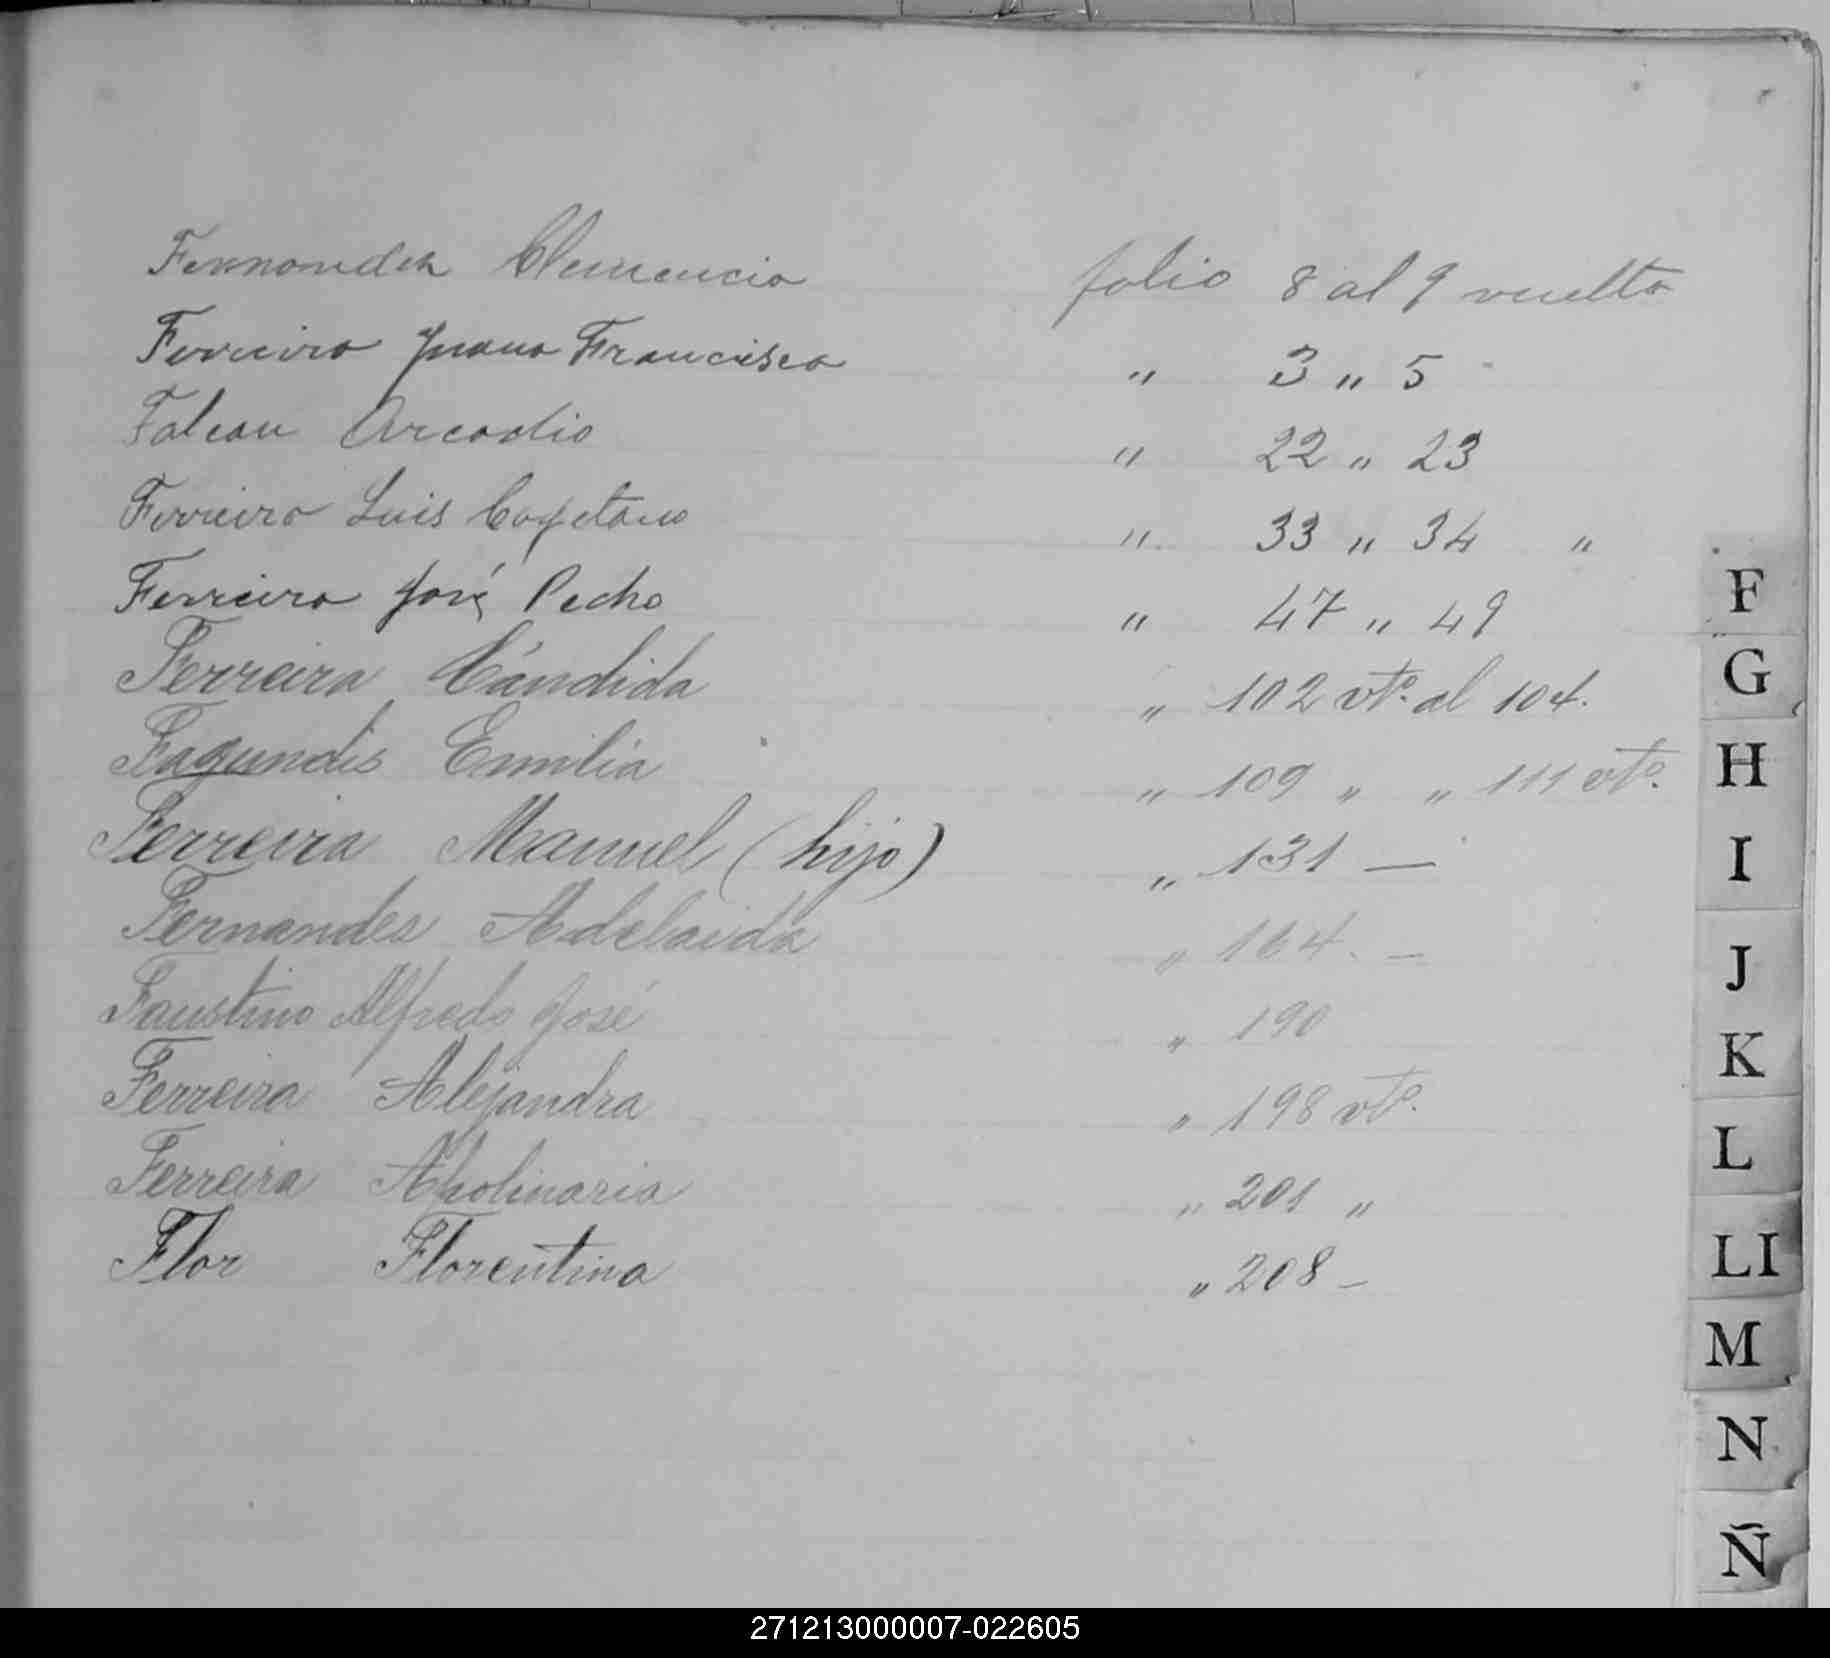 Fernandez Clemencia folio 8 al 9 vuelto
Ferreira Juana Francisca " 3 " 5
Falcon Arcadio " 22 " 23
Ferreira Luis Cayetano " 33 " 34 "
Ferreira José Pedro " 47 " 49
Ferreira Cándida " 102 vto. al 104.
Fagundis Emilia " 109 " " 111 vto.
Ferreira Manuel (hijo) " 131 —
Fernandes Adelaida " 164. —
Faustino Alfredo José " 190
Ferreira Alejandra " 198 vto.
Ferreira Apolinaria " 201 "
Flor Florentina " 208 —
F
G
H
I
J
K
L
Ll
M
N
Ñ
271213000007-022605